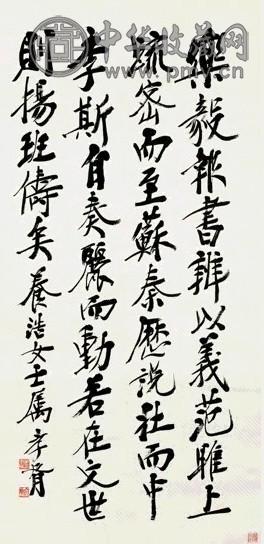 中华收藏网
樂毅報書辨以義范雎上
疏密而至蘇秦歷說壯而中
李斯自奏麗而動若在文世
則揚班儔矣養浩女士屬孝胥